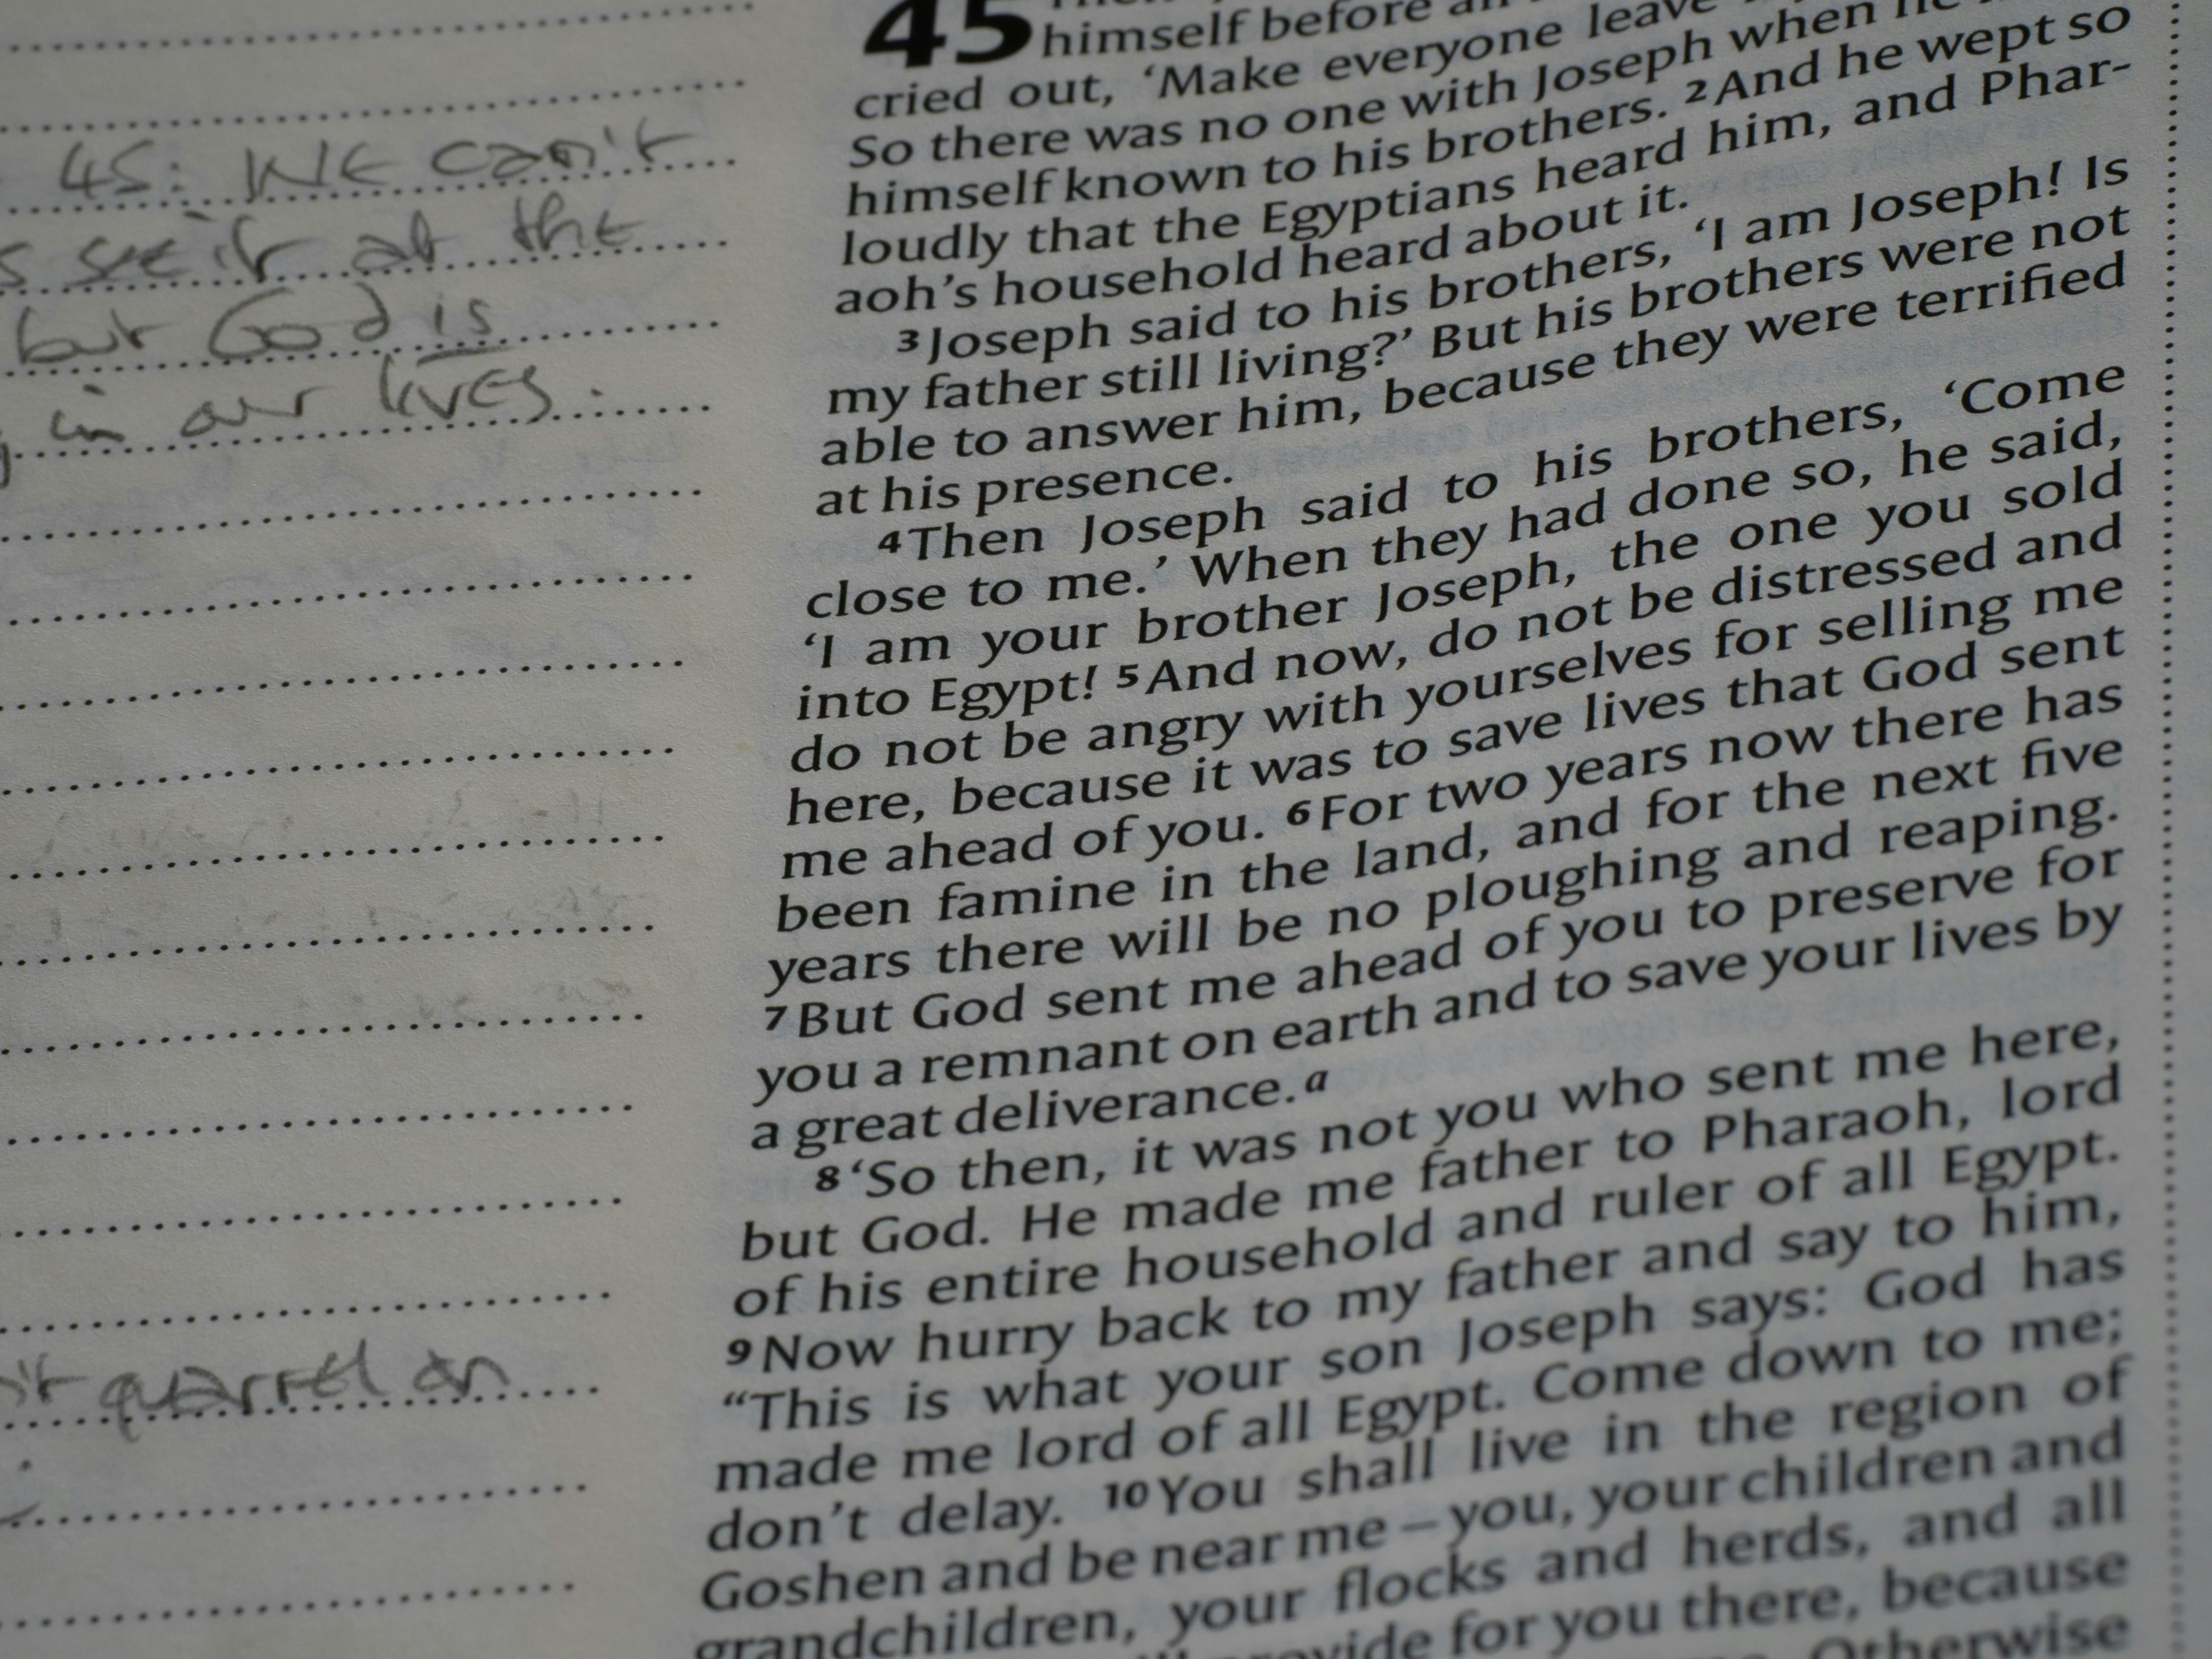 45: We can't
see it at the
but God is
in our lives.
quarrel on
45
himself before
cried out, ‘Make everyone leave
So there was no one with Joseph when he
himself known to his brothers. 2And he wept so
loudly that the Egyptians heard him, and Phar-
aoh’s household heard about it.
3Joseph said to his brothers, ‘I am Joseph! Is
my father still living?’ But his brothers were not
able to answer him, because they were terrified
at his presence.
4Then Joseph said to his brothers, ‘Come
close to me.’ When they had done so, he said,
‘I am your brother Joseph, the one you sold
into Egypt! 5And now, do not be distressed and
do not be angry with yourselves for selling me
here, because it was to save lives that God sent
me ahead of you. 6For two years now there has
been famine in the land, and for the next five
years there will be no ploughing and reaping.
7But God sent me ahead of you to preserve for
you a remnant on earth and to save your lives by
a great deliverance.a
8‘So then, it was not you who sent me here,
but God. He made me father to Pharaoh, lord
of his entire household and ruler of all Egypt.
9Now hurry back to my father and say to him,
“This is what your son Joseph says: God has
made me lord of all Egypt. Come down to me;
don’t delay. 10You shall live in the region of
Goshen and be near me – you, your children and
grandchildren, your flocks and herds, and all
provide for you there, because
Otherwise